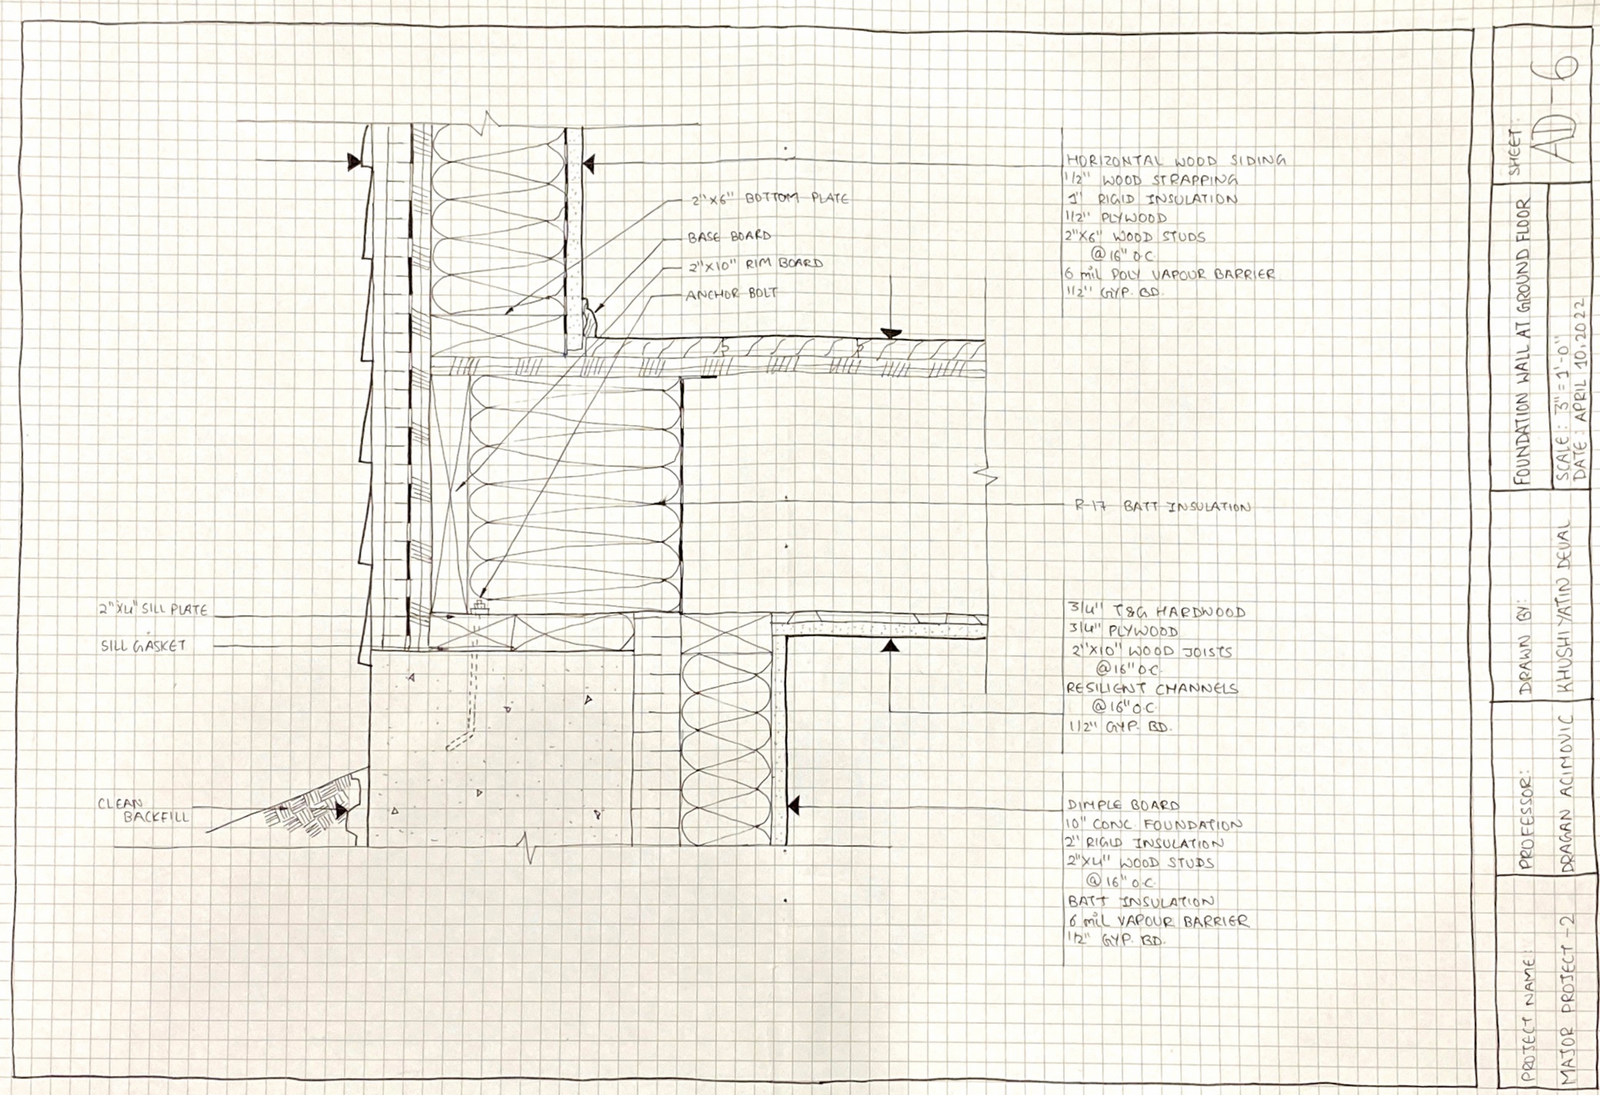 HORIZONTAL WOOD SIDING
1/2" WOOD STRAPPING
1" RIGID INSULATION
1/2" PLYWOOD
2"X6" WOOD STUDS
@16" O.C.
6 mil POLY VAPOUR BARRIER
1/2" GYP. BD.
2"X6" BOTTOM PLATE
BASE BOARD
2"X10" RIM BOARD
ANCHOR BOLT
R-17 BATT INSULATION
2"X4" SILL PLATE
SILL GASKET
3/4" T&G HARDWOOD
3/4" PLYWOOD
2"X10" WOOD JOISTS
@16" O.C.
RESILIENT CHANNELS
@16" O.C.
1/2" GYP. BD.
CLEAN
BACKFILL
DIMPLE BOARD
10" CONC. FOUNDATION
2" RIGID INSULATION
2"X4" WOOD STUDS
@16" O.C.
BATT INSULATION
6 mil VAPOUR BARRIER
1/2" GYP. BD.
SHEET:
AD-6
FOUNDATION WALL AT GROUND FLOOR
SCALE: 3"=1'-0"
DATE: APRIL 10,2022
DRAWN BY:
KHUSHI YATIN DEVAL
PROFESSOR:
DRAGAN ACIMOVIC
PROJECT NAME:
MAJOR PROJECT-2